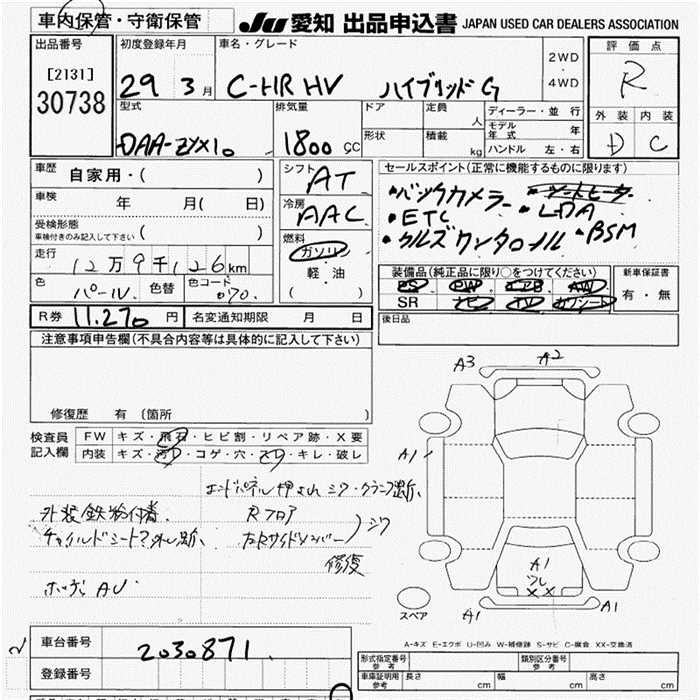 車内保管・守衛保管
JU 愛知 出品申込書 JAPAN USED CAR DEALERS ASSOCIATION
出品番号
[2131]
30738
初度登録年月
29 3月
車名・グレード
C-HR HV ハイブリッド G
2WD
・
4WD
評価点
R
外装 内装
D C
型式
DAA-ZYX10
排気量
1800 CC
ドア
形状
定員
人
積載
kg
ディーラー・並行
モデル年式 年
ハンドル 左・右
車歴
自家用・( )
車検
年 月( 日)
受検形態
車検付きのみ記入して下さい ( )
走行
12万9千126km
色
パール
色替
色コード
070
シフト
AT
冷房
AAC
燃料
ガソリン
軽・油
( )
セールスポイント(正常に機能するものに限ります)
・バックカメラー ・シートヒーター
・ETC ・LDA
・クルズコンタロール ・BSM
装備品(純正品に限り○をつけてください)
PS PW エアB AW
SR ナビ TV カワシート
新車保証書
有・無
R券 11,270 円
名変通知期限 月 日
後日品
注意事項申告欄(不具合内容等は具体的に記入して下さい)
修復歴 有 (箇所 )
検査員
記入欄
FW キズ・飛石・ヒビ割・リペア跡・X要
内装 キズ・汚れ・コゲ・穴・スレ・キレ・破レ
エンドパネル押され シワ・クランプ跡
外装鉄粉付着 Rフロア
チャイルドシートマ外し跡 左Rサイドメンバー ) シワ
修復
ホッディ AU
A3 A2
A1
A1
ワレ
XX
A1 A1
スペア
A-キズ E-エクボ U-凹み W-補修跡 S-サビ C-腐食 XX-交換済
車台番号
2030871
登録番号
形式指定番号
参考
類別区分番号
参考
車庫証明用
参考
長さ cm 幅 cm 高さ cm